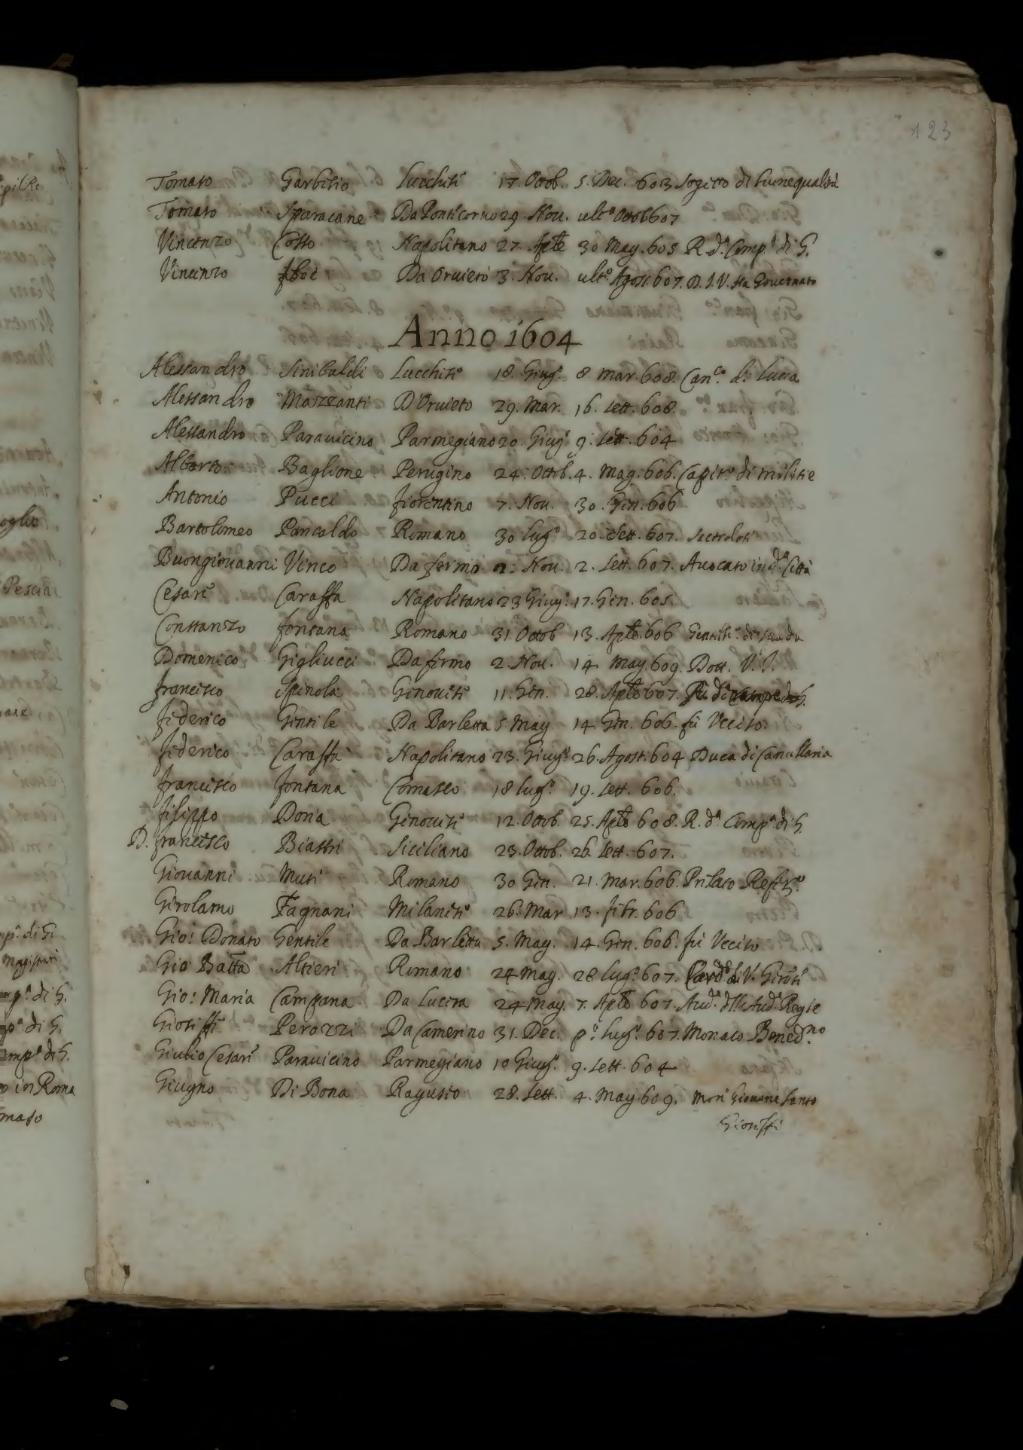 123
Tomaso Garbesio Lucchese 17. Ottob. 5. Dec. 603 Sogetto di buone qualità
Tomaso Sparacane Da Pontecorvo 29. Nov. ult.º Ottob 607
Vincenzo Costo Napolitano 27. Aple 30 May. 605 R. dª Compª di G.
Vincenzo Da Orvieto 3. Nov. ult.º Agost. 607. D. I. V. Ha Governato
Anno 1604
Alessandro Sinibaldi Lucchese 18. Giugº 8 Mar. 608 Canco di Lucca
Alessandro Mazzanti D'Orvieto 29. Mar. 16. Sett. 608
Alessandro Paravicino Parmegiano 20 Giugº 9. Sett. 604
Alberto Baglione Perugino 24. Ottob. 4. Mag. 606. Capitº di militie
Antonio Pucci fiorentino 7. Nov. 30. Gen. 606
Bartolomeo Pancaldo Romano 30 lugº 20. Sett. 607.
Buongiovanni Vinco Da fermo 2. Nov. 2. Sett. 607. Avocato in dª Città
Cesare Caraffa Napolitano 23 Giugº 17. Gen. 605.
Constanzo fontana Romano 31 Ottob 13. Aple 606
Domenico Gigliucci Da fermo 2. Nov. 14 May 609. Dott. V. I.
francesco Spinola Genovese 11. Gen. 28. Aple 607.
federico Gentile Da Barletta 5 May 14. Gen. 606. fù Ucciso
federico Caraffa Napolitano 23. Giugº 26. Agost. 604 Duca di
francesco fontana Comasco 18 lugº 19. Sett. 606.
filippo Doria Genovese 12. Ottob 25. Aple 608. R. dª Compª di G
D. francesco Biastri Siciliano 23. Ottob. 26. Sett. 607.
Giovanni Muti Romano 30 Gen. 21. Mar. 606. Prilato Refº
Girolamo Fagnani Milanese 26. Mar 13. febr. 606
Gio: Donato Gentile Da Barletta 5. May. 14. Gen. 606. fù Ucciso
Gio Batta Altieri Romano 24 Mag. 28 lugº 607.
Gio: Maria Campana Da Lucera 24 May 7. Aple 607. Audº Regie
Gioseffe Perozzi Da Camerino 31. Dec. pº lugº 607. Monaco Benedno
Giulio Cesare Paravicino Parmegiano 10 Giugº 9. Sett. 604
Giugno Di Bona Raguseo 28. Sett. 4. May 609. Morì Giovane Santo
Gioseffe